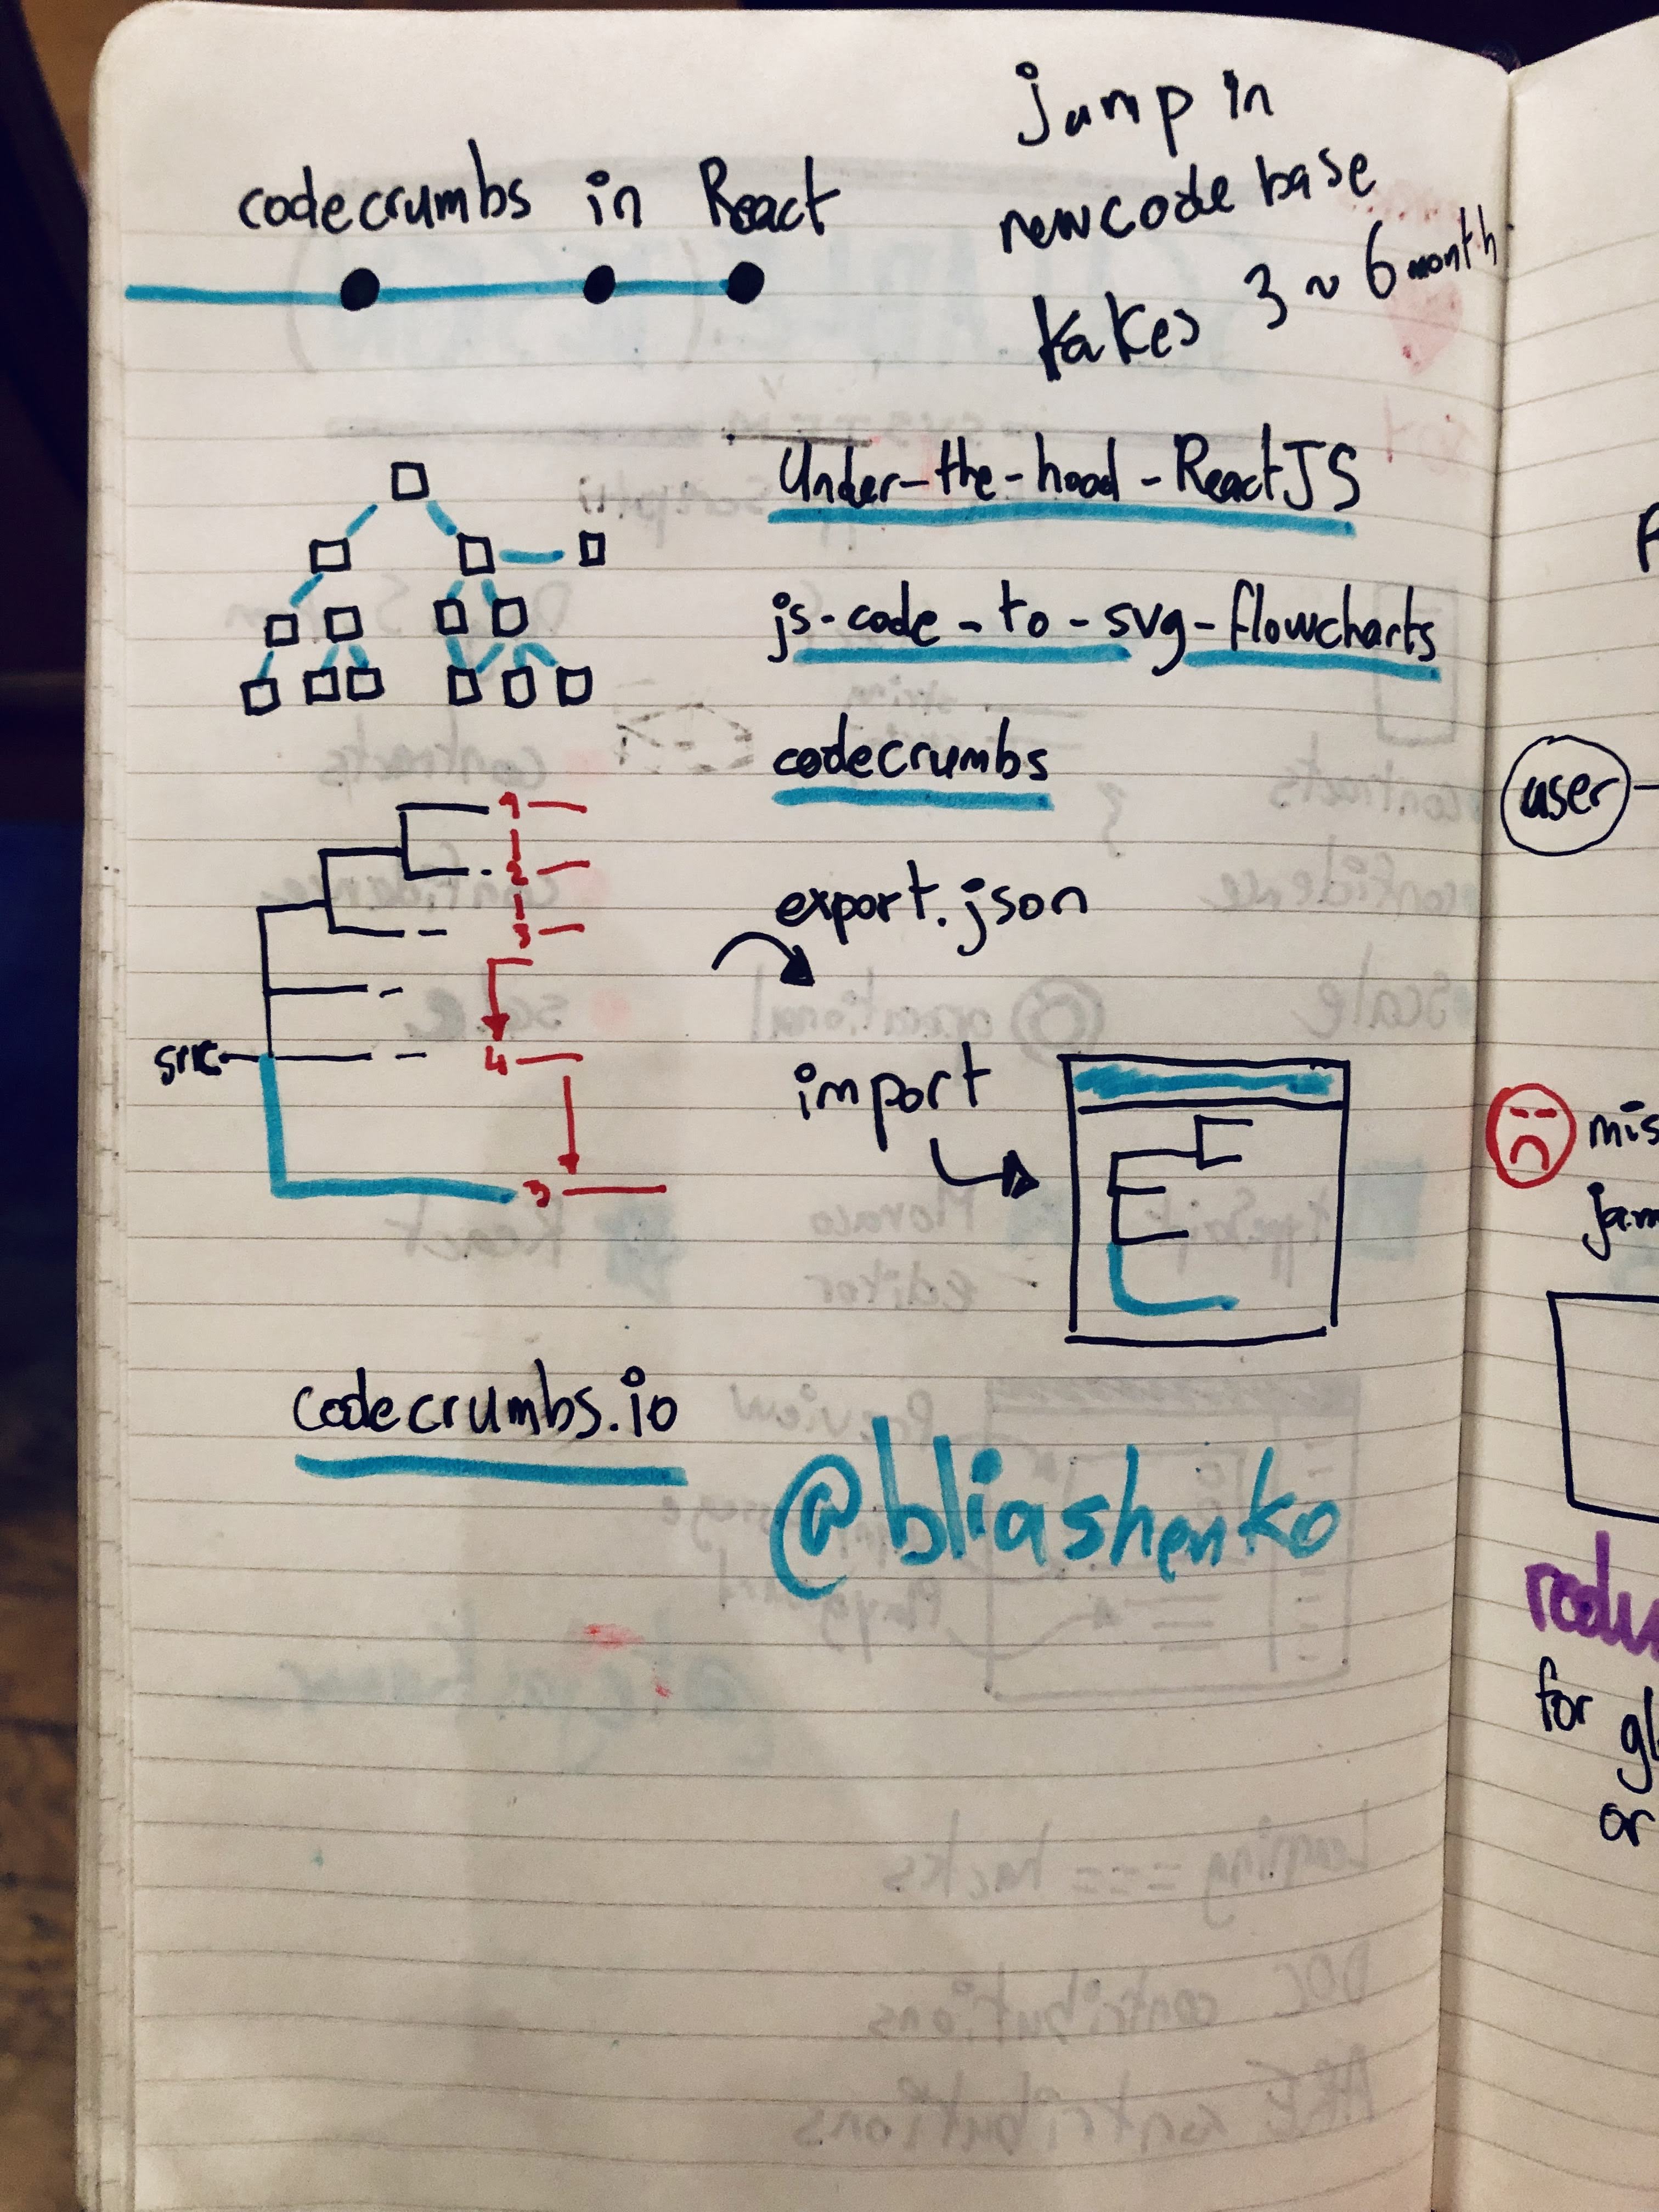 codecrumbs in React
jump in
new code base
takes 3 ~ 6 month
Under-the-hood-ReactJS
js-code-to-svg-flowcharts
codecrumbs
1
2
3
export.json
src
4
import
5
codecrumbs.io
@bliashenko
user
mis
jam
redu
for gl
or